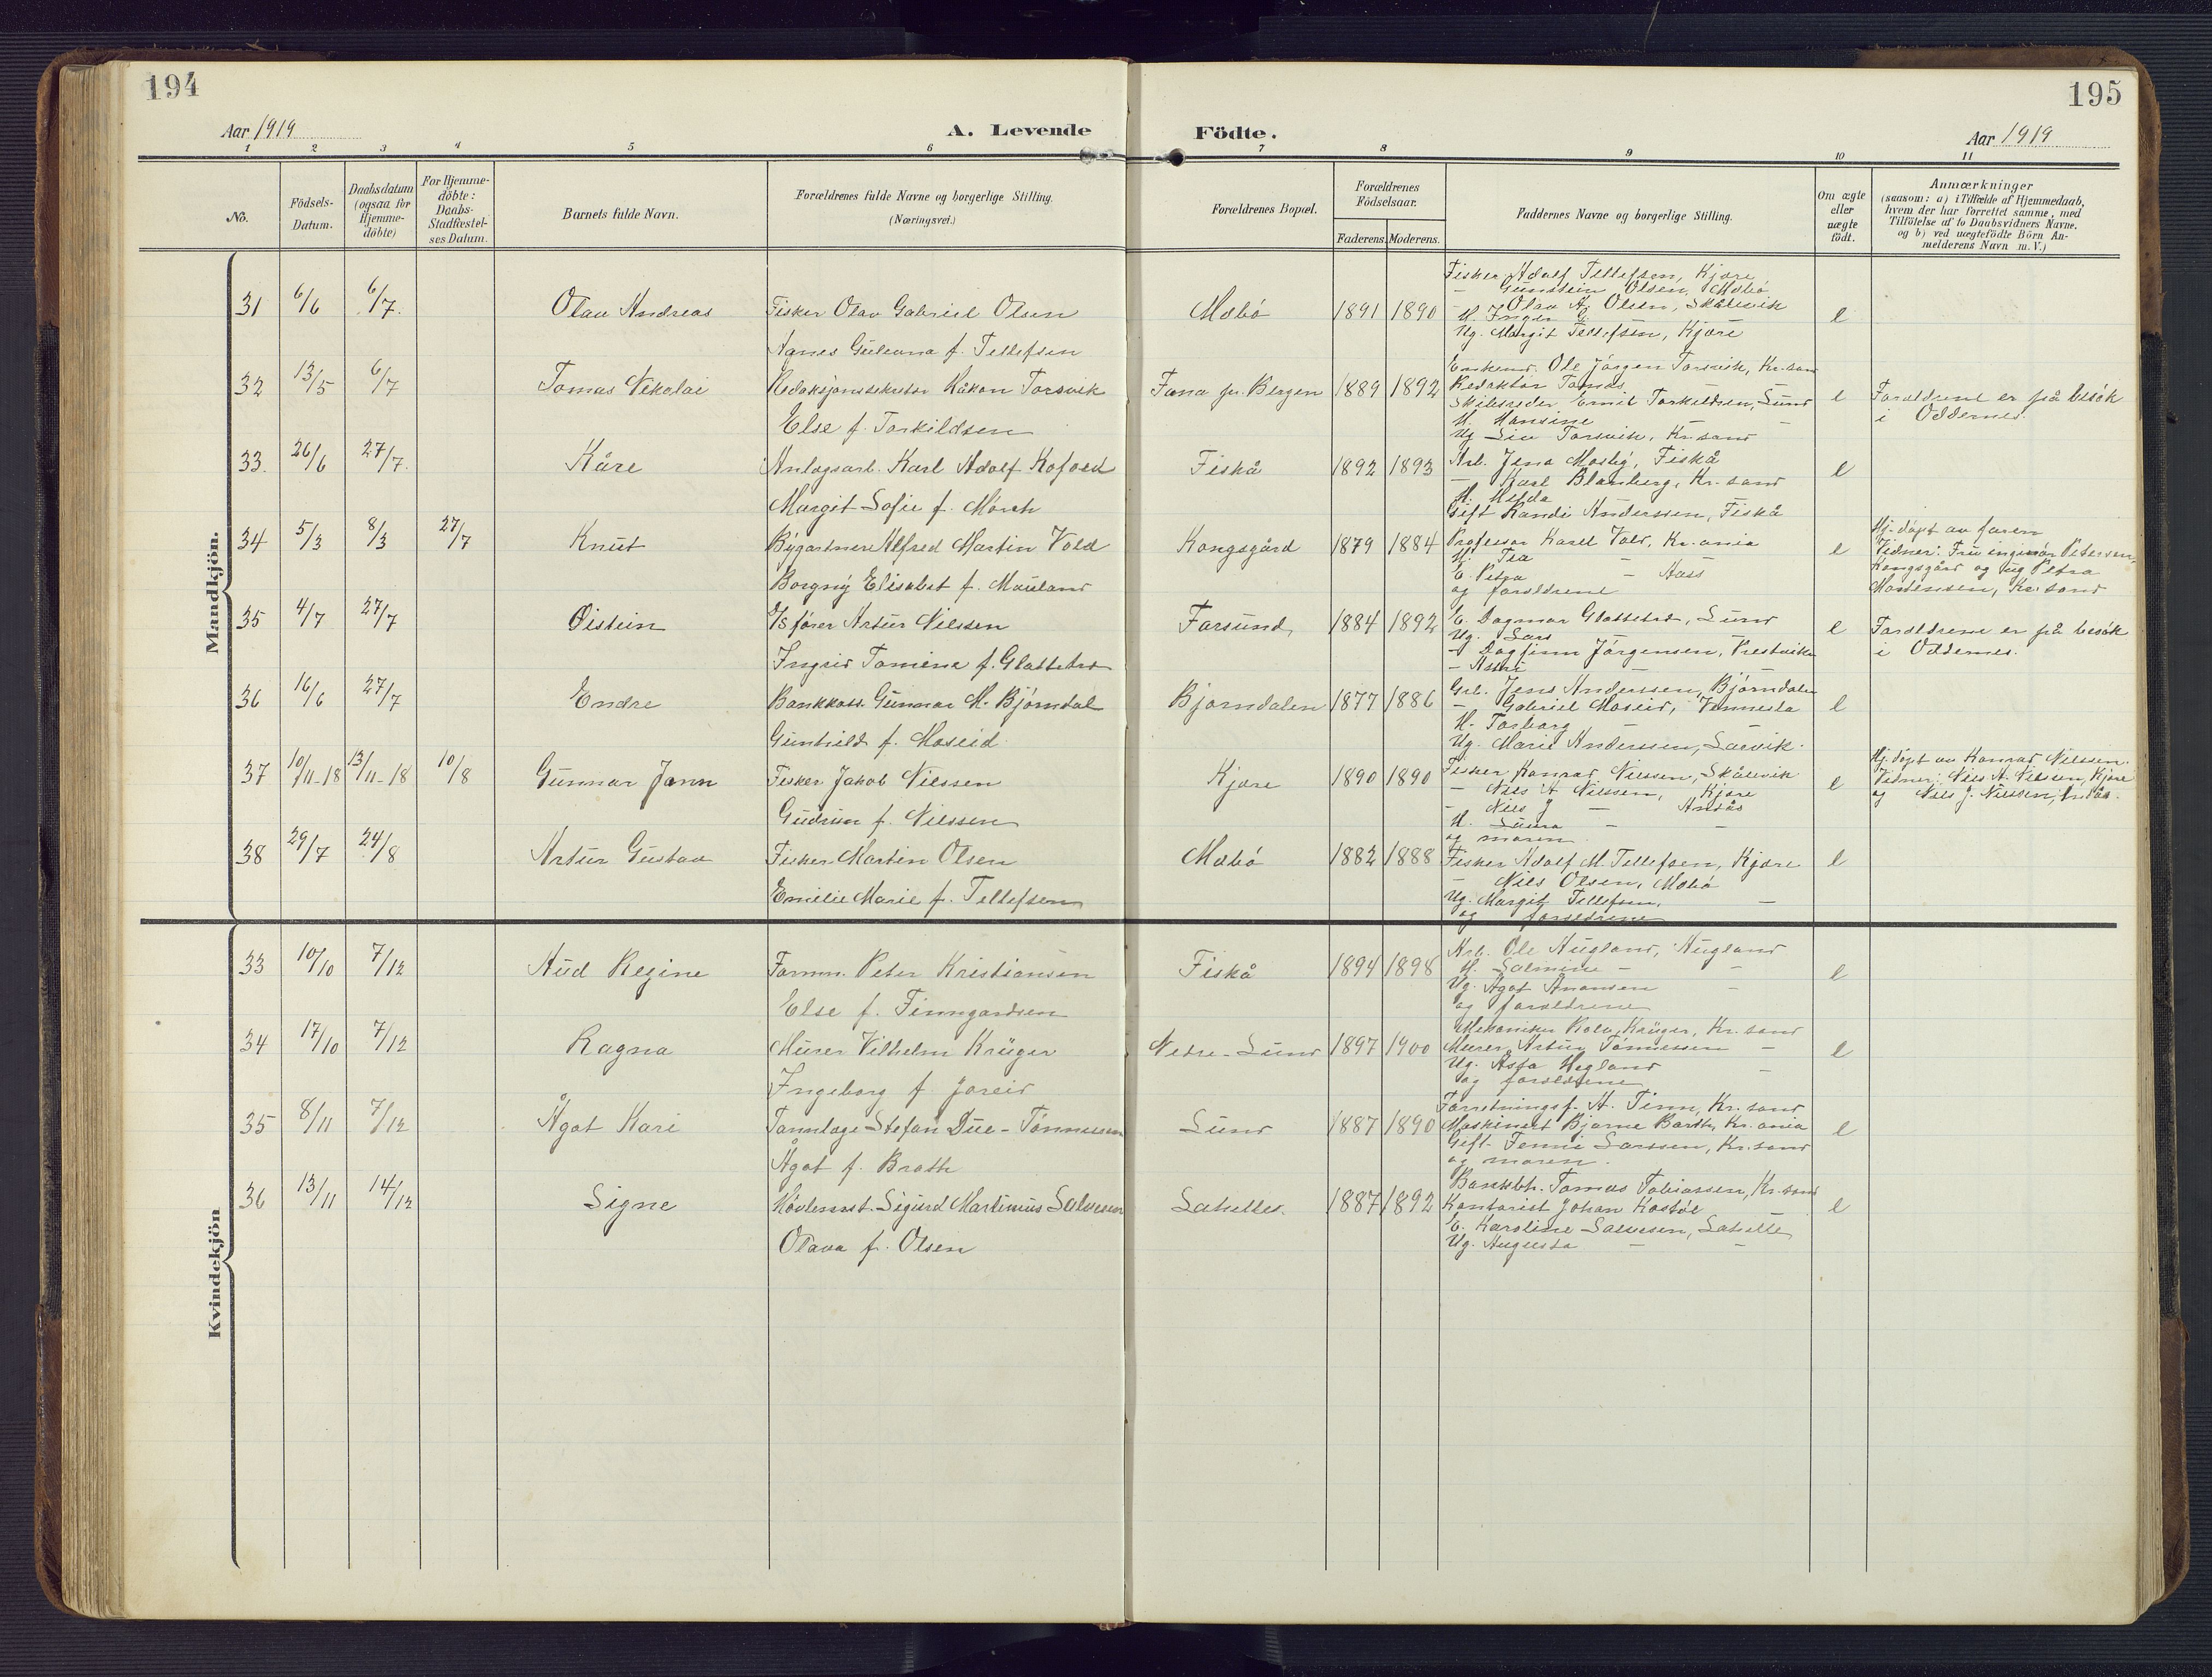 194
195
Aar 1919
A. Levende
Födte.
Aar 1919
1 2 3 4 5 6 7 8 9 10 11
No.
Födsels-
Datum.
Daabsdatum
(ogsaa for
Hjemme-
döbte)
For Hjemme-
döbte:
Daabs-
Stadfæstel-
ses Datum.
Barnets fulde Navn.
Forældrenes fulde Navne og borgerlige Stilling.
(Næringsvei.)
Forældrenes Bopæl.
Forældrenes
Födselsaar.
Faderens. Moderens.
Faddernes Navne og borgerlige Stilling.
Om ægte
eller
uægte
födt.
Anmærkninger
(saasom: a) i Tilfælde af Hjemmedaab,
hvem der har forrettet samme, med
Tilföielse af to Daabsvidners Navne,
og b) ved uægtefödte Börn An-
melderens Navn m. V.)
Mandkjön.
31 6/6 6/7. Olav Andreas
Fisker Olav Gabriel Olsen
Agnes Guleana f. Tellefsen
Mæbö 1891 1890
Fisker Adolf Tellefsen, Kjøre
- Gunstein Olsen, Mæbö
- Olav A. Olsen, Skålevik
H. Inger E. -
Ug. Margit Tellefsen, Kjøre
e
32 13/5 6/7 Tomas Nikolai
Redaksjonssekretær Håkon Torsvik
Else f. Torkildsen
Fana pr. Bergen 1889 1892
Enkem. Ole Jörgen Torsvik, Kr.sand
Redaktör Tomas
Skibsreder Emil Torkildsen, Lund
H. Hansine - -
Ug Liv Torsvik, Kr.sand
e
Foreldrene er på besök
i Oddernes.
33. 26/6 27/7. Kåre
Anlægsarb. Karl Adolf Kofoed
Margit Sofie f. Mörch
Fiskå 1892 1893
Arb. Jens Mosby, Fiskå
- Karl Blomberg, Kr.sand
H. Hilda
Gift Randi Anderssen, Fiskå
e
34 5/3 8/3 27/7 Knut
Bygartner Alfred Martin Vold
Borgny Elisabet f. Mauland
Kongsgård 1879 1884
Professor Karel Vold, Kr.ania
H. Tea -
E. Petra - Aass
og foreldrene
e
Hj. döpt av faren
Vidner: Fru ingeniör Petersen,
Kongsgård og ug Petra
Mortensen, Kr.sand
35 4/7 27/7 Öistein
D/S förer Artur Nilssen
Ingrid Tomine f. Glattetre
Farsund, 1884 1892
E. Dagmar Glattetre, Lund
Ug. Lars -
- Dagfinn Jörgensen, Prestvika
- Astri - -
e
Foreldrene er på besök
i Oddernes.
36 16/6 27/7 Endre
Bankkass. Gunnar M. Björndal
Gunhild f. Moseid
Bjørndalen 1877 1886
Grb. Jens Anderssen, Björndalen
- Gabriel Moseid, Vennesla
H. Torborg - -
Ug. Marie Anderssen, Larvik.
e
37 10/11-18 13/11-18 10/8 Gunnar Jonn
Fisker Jakob Nilssen
Gudrun f. Nilssen
Kjøre 1890 1890
Fisker Konrad Nilssen, Skålevik
- Nils A Nilssen, Kjøre
- Nils J - Andås
H. Laura - -
og moren
e
Hj. döpt av Konrad Nilssen.
Vidner: Nils A. Nilssen, Kjøre
og Nils J. Nilssen, Andås.
38 29/7 24/8 Artur Gustav
Fisker Martin Olsen
Emilie Marie f. Tellefsen
Mæbö 1882 1888
Fisker Adolf M. Tellefsen, Kjøre
- Nils Olsen, Mæbö
Ug. Margit Tellefsen, -
og foreldrene
e
Kvindekjön
33 10/10 7/12 Aud Regine
Formn. Peter Kristiansen
Else f. Finngardsen
Fiskå 1894 1898
Arb. Ole Augland, Augland
H. Salmine - -
Ug. Agot Amansen -
og foreldrene
e
34 17/10 7/12 Ragna
Murer Vilhelm Krüger
Ingeborg f. Joreid
Nedre-Lund 1897 1900
Mekaniker Rolv Krüger, Kr.sand
Murer Artur Tönnessen -
Ug. Asta Hegland -
og foreldrene
e
35 8/11 7/12 Ågot Kari
Tannlæge Stefan Due-Tönnessen
Ågot f. Brath
Lund 1887 1890
Forretningsf. A. Tinn, Kr.sand
Maskinist Bjarne Barth, Kr.ania
Gift Fenni Larssen, Kr.sand
og moren.
e
36 13/11 14/12 Signe
Hövlemst. Sigurd Martinius Salvesen
Olava f. Olsen
Lahelle. 1887 1892
Bankbt. Tomas Tobiassen, Kr.sand
Kontorist Johan Kostöl -
E. Karoline Salvesen, Lahelle
Ug. Augusta - -
e